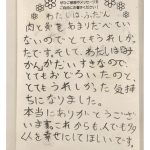 わたしはふだん
肉と魚をあまりたべてい
ないのでとてもうれしか
たです。そして、わだしはなみ
かんがだいすきなので、
とてもおどろいたのと、
とてもうれしかった気持
ちになりました。
本当にありがとうござ
います。これからも人でも多
くを幸せにしてほしいです。